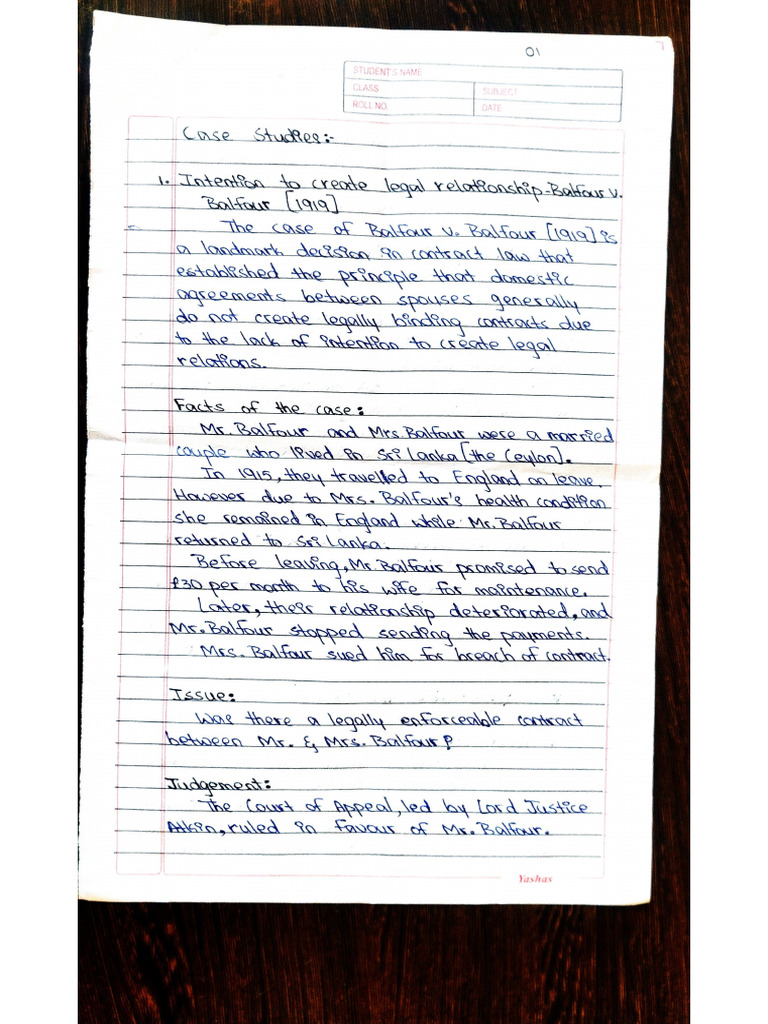 01
STUDENT'S NAME
CLASS
SUBJECT
ROLL NO.
DATE
Case Studies:-
1. Intention to create legal relationship-Balfour v.
Balfour [1919]
The case of Balfour v. Balfour [1919] is
a landmark decision in contract law that
established the principle that domestic
agreements between spouses generally
do not create legally binding contracts due
to the lack of intention to create legal
relations.
Facts of the case:
Mr. Balfour and Mrs Balfour were a married
couple who lived in Sri Lanka [the Ceylon].
In 1915, they travelled to England on leave.
However due to Mrs. Balfour's health condition
she remained in England while Mr. Balfour
returned to Sri Lanka.
Before leaving, Mr Balfour promised to send
£30 per month to his wife for maintenance.
Later, their relationship deteriorated, and
Mr. Balfour stopped sending the payments.
Mrs. Balfour sued him for breach of contract.
Issue:
Was there a legally enforceable contract
between Mr. & Mrs. Balfour?
Judgement:
The Court of Appeal, led by Lord Justice
Atkin, ruled in favour of Mr. Balfour.
Yashas